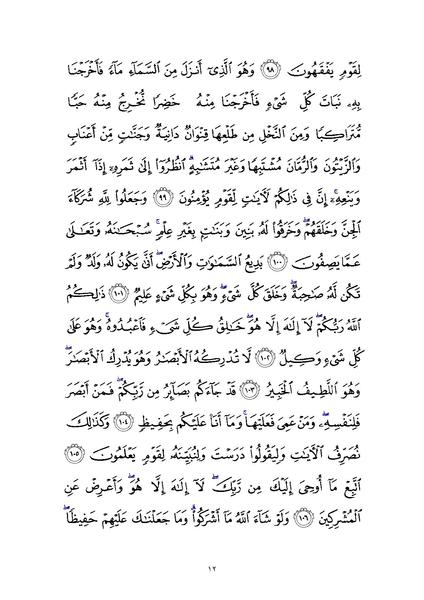 لِقَوْمٍ يَفْقَهُونَ ۝٩٨ وَهُوَ الَّذِىٓ أَنزَلَ مِنَ السَّمَآءِ مَآءً فَأَخْرَجْنَا
بِهِۦ نَبَاتَ كُلِّ شَىْءٍ فَأَخْرَجْنَا مِنْهُ خَضِرًا نُّخْرِجُ مِنْهُ حَبًّا
مُّتَرَاكِبًا وَمِنَ النَّخْلِ مِن طَلْعِهَا قِنْوَانٌ دَانِيَةٌ وَجَنَّٰتٍ مِّنْ أَعْنَابٍ
وَالزَّيْتُونَ وَالرُّمَّانَ مُشْتَبِهًا وَغَيْرَ مُتَشَٰبِهٍ ۗ انظُرُوٓا۟ إِلَىٰ ثَمَرِهِۦٓ إِذَآ أَثْمَرَ
وَيَنْعِهِۦٓ ۚ إِنَّ فِى ذَٰلِكُمْ لَءَايَٰتٍ لِّقَوْمٍ يُؤْمِنُونَ ۝٩٩ وَجَعَلُوا۟ لِلَّهِ شُرَكَآءَ
الْجِنَّ وَخَلَقَهُمْ ۖ وَخَرَقُوا۟ لَهُۥ بَنِينَ وَبَنَٰتٍۭ بِغَيْرِ عِلْمٍ ۚ سُبْحَٰنَهُۥ وَتَعَٰلَىٰ
عَمَّا يَصِفُونَ ۝١٠٠ بَدِيعُ السَّمَٰوَٰتِ وَالْأَرْضِ ۖ أَنَّىٰ يَكُونُ لَهُۥ وَلَدٌ وَلَمْ
تَكُن لَّهُۥ صَٰحِبَةٌ ۖ وَخَلَقَ كُلَّ شَىْءٍ ۖ وَهُوَ بِكُلِّ شَىْءٍ عَلِيمٌ ۝١٠١ ذَٰلِكُمُ
اللَّهُ رَبُّكُمْ ۖ لَآ إِلَٰهَ إِلَّا هُوَ ۖ خَٰلِقُ كُلِّ شَىْءٍ فَاعْبُدُوهُ ۚ وَهُوَ عَلَىٰ
كُلِّ شَىْءٍ وَكِيلٌ ۝١٠٢ لَّا تُدْرِكُهُ الْأَبْصَٰرُ وَهُوَ يُدْرِكُ الْأَبْصَٰرَ ۖ
وَهُوَ اللَّطِيفُ الْخَبِيرُ ۝١٠٣ قَدْ جَآءَكُم بَصَآئِرُ مِن رَّبِّكُمْ ۖ فَمَنْ أَبْصَرَ
فَلِنَفْسِهِۦ ۖ وَمَنْ عَمِىَ فَعَلَيْهَا ۚ وَمَآ أَنَا۠ عَلَيْكُم بِحَفِيظٍ ۝١٠٤ وَكَذَٰلِكَ
نُصَرِّفُ الْءَايَٰتِ وَلِيَقُولُوا۟ دَرَسْتَ وَلِنُبَيِّنَهُۥ لِقَوْمٍ يَعْلَمُونَ ۝١٠٥
اتَّبِعْ مَآ أُوحِىَ إِلَيْكَ مِن رَّبِّكَ ۖ لَآ إِلَٰهَ إِلَّا هُوَ ۖ وَأَعْرِضْ عَنِ
الْمُشْرِكِينَ ۝١٠٦ وَلَوْ شَآءَ اللَّهُ مَآ أَشْرَكُوا۟ ۗ وَمَا جَعَلْنَٰكَ عَلَيْهِمْ حَفِيظًا ۖ
١٢